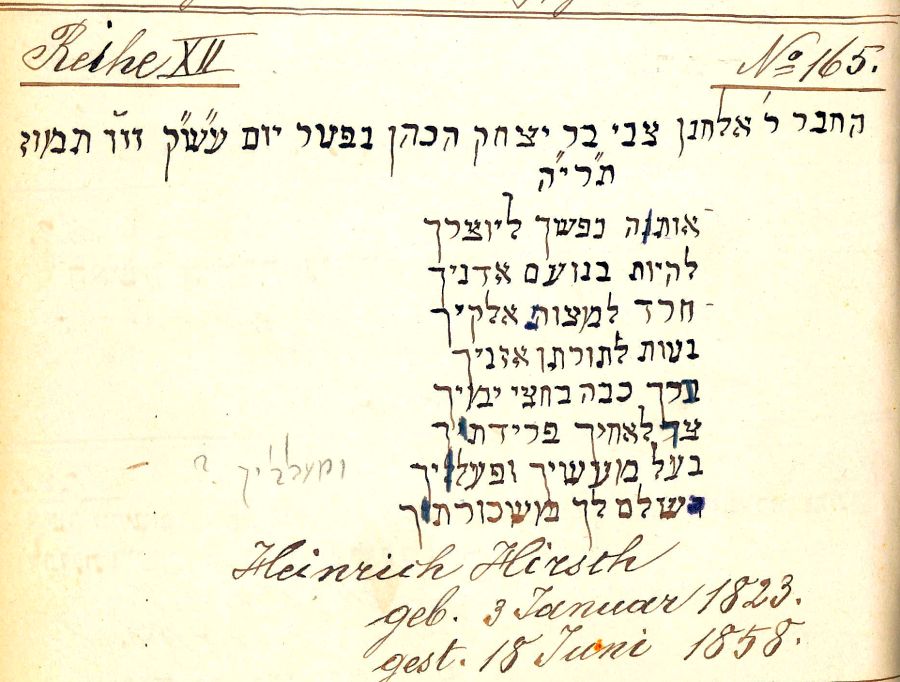 Reihe XII No 165.
החבר ר' אלחנן צבי בר יצחק הכהן נפטר יום עש"ק וי"ו תמוז
תרי"ח
אותה נפשך ליוצרך
להיות בנועם אדניך
חרד למצות אלקיך
נטות לתורתו אזניך
נרך כבה בחצי ימיך
צר לאחיך פרידתיך
בעל מעשיך ופעליך ומעלליך ?
ישלם לך משכורתיך
Heinrich Hirsch
geb. 3 Januar 1823.
gest. 18 Juni 1858.